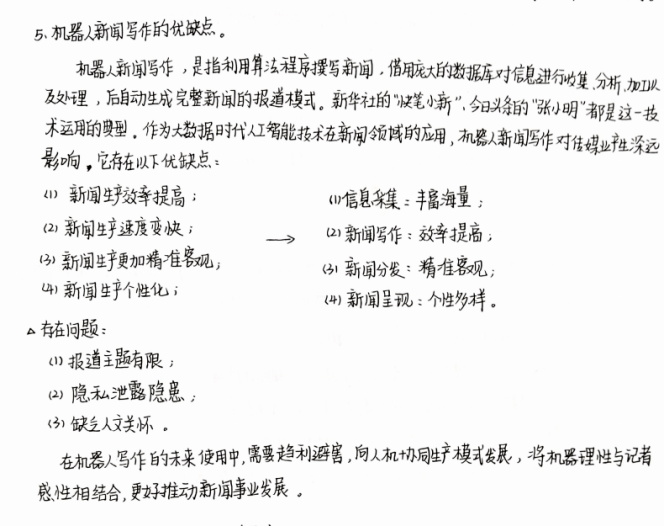 5、机器人新闻写作的优缺点。
机器人新闻写作，是指利用算法程序撰写新闻，借用庞大的数据库对信息进行收集、分析、加工以
及处理，后自动生成完整新闻的报道模式。新华社的“快笔小新”、今日头条的“张小明”都是这一技
术运用的典型。作为大数据时代人工智能技术在新闻领域的应用，机器人新闻写作对传媒业产生深远
影响，它存在以下优缺点：
(1) 新闻生产效率提高；
(2) 新闻生产速度变快；
(3) 新闻生产更加精准客观；
(4) 新闻生产个性化；
→
(1) 信息采集：丰富海量；
(2) 新闻写作：效率提高；
(3) 新闻分发：精准客观；
(4) 新闻呈现：个性多样。
△ 存在问题：
(1) 报道主题有限；
(2) 隐私泄露隐患；
(3) 缺乏人文关怀。
在机器人写作的未来使用中，需要趋利避害，向人机协同生产模式发展，将机器理性与记者
感性相结合，更好推动新闻事业发展。